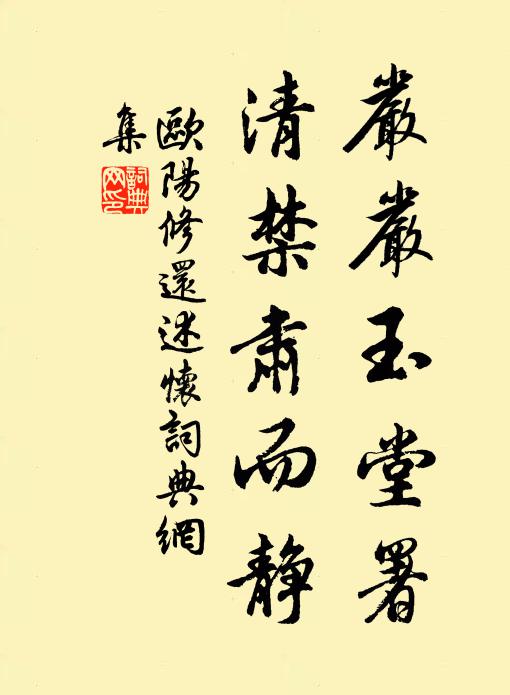 嚴嚴玉堂署
清禁肅而静
歐陽修還述懷詞典網
集
詞典网印